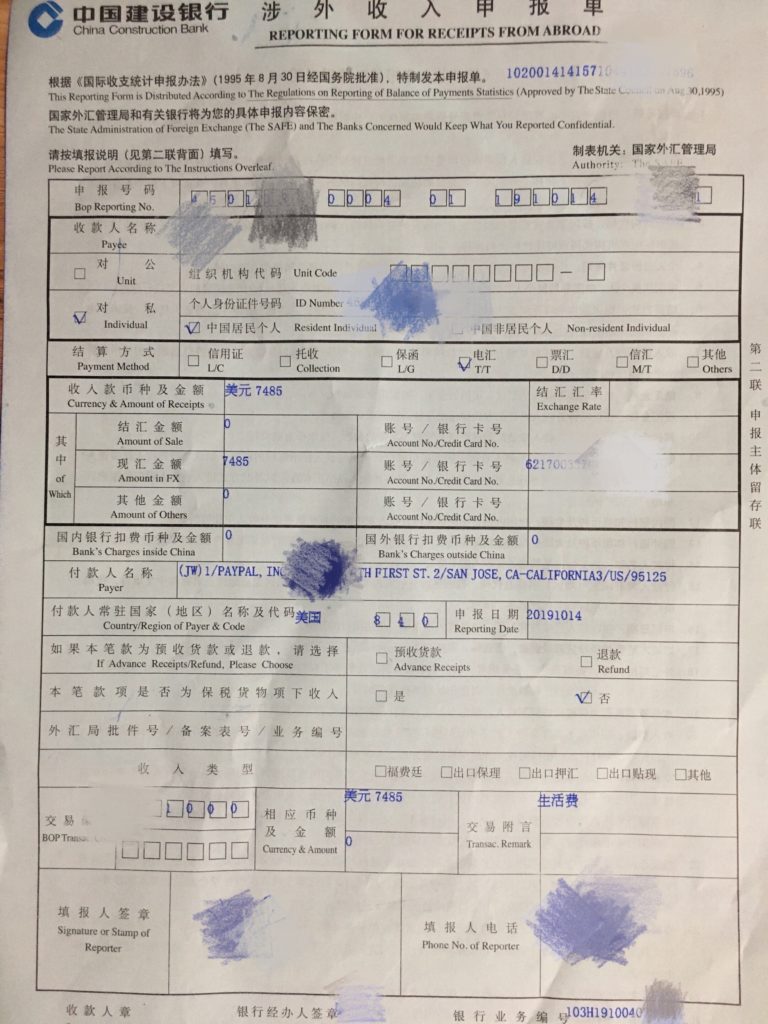 中国建设银行
China Construction Bank
涉外收入申报单
REPORTING FORM FOR RECEIPTS FROM ABROAD
根据《国际收支统计申报办法》(1995年8月30日经国务院批准),特制发本申报单。
This Reporting Form is Distributed According to The Regulations on Reporting of Balance of Payments Statistics (Approved by The State Council on Aug.30,1995)
国家外汇管理局和有关银行将为您的具体申报内容保密。
The State Administration of Foreign Exchange (The SAFE) and The Banks Concerned Would Keep What You Reported Confidential.
请按填报说明(见第二联背面)填写。
Please Report According to The Instructions Overleaf.
制表机关:国家外汇管理局
Authority: The SAFE
申报号码
Bop Reporting No.
4501 0004 01 191014 1
收款人名称
Payee
□ 对公
Unit
组织机构代码 Unit Code
☑ 对私
Individual
个人身份证件号码 ID Number
☑ 中国居民个人 Resident Individual □ 中国非居民个人 Non-resident Individual
结算方式
Payment Method
□ 信用证 L/C
□ 托收 Collection
□ 保函 L/G
☑ 电汇 T/T
□ 票汇 D/D
□ 信汇 M/T
□ 其他 Others
收入款币种及金额
Currency & Amount of Receipts
美元 7485
结汇汇率
Exchange Rate
其中
of Which
结汇金额
Amount of Sale
0
账号/银行卡号
Account No./Credit Card No.
现汇金额
Amount in FX
7485
账号/银行卡号
Account No./Credit Card No.
其他金额
Amount of Others
0
账号/银行卡号
Account No./Credit Card No.
国内银行扣费币种及金额
Bank's Charges inside China
0
国外银行扣费币种及金额
Bank's Charges outside China
0
付款人名称
Payer
(JW)1/PAYPAL, FIRST ST. 2/SAN JOSE, CA-CALIFORNIA3/US/95125
付款人常驻国家(地区)名称及代码
Country/Region of Payer & Code
美国
840
申报日期
Reporting Date
20191014
如果本笔款为预收货款或退款,请选择
If Advance Receipts/Refund, Please Choose
□ 预收货款
Advance Receipts
□ 退款
Refund
本笔款项是否为保税货物项下收入
□ 是
☑ 否
外汇局批件号/备案表号/业务编号
收入类型
□福费廷 □出口保理 □出口押汇 □出口贴现 □其他
交易
BOP
1000
相应币种及金额
Currency & Amount
美元 7485
0
交易附言
Transac. Remark
生活费
填报人签章
Signature or Stamp of Reporter
填报人电话
Phone No. of Reporter
收款人章
银行经办人签章
银行业务编号
第二联 申报主体留存联